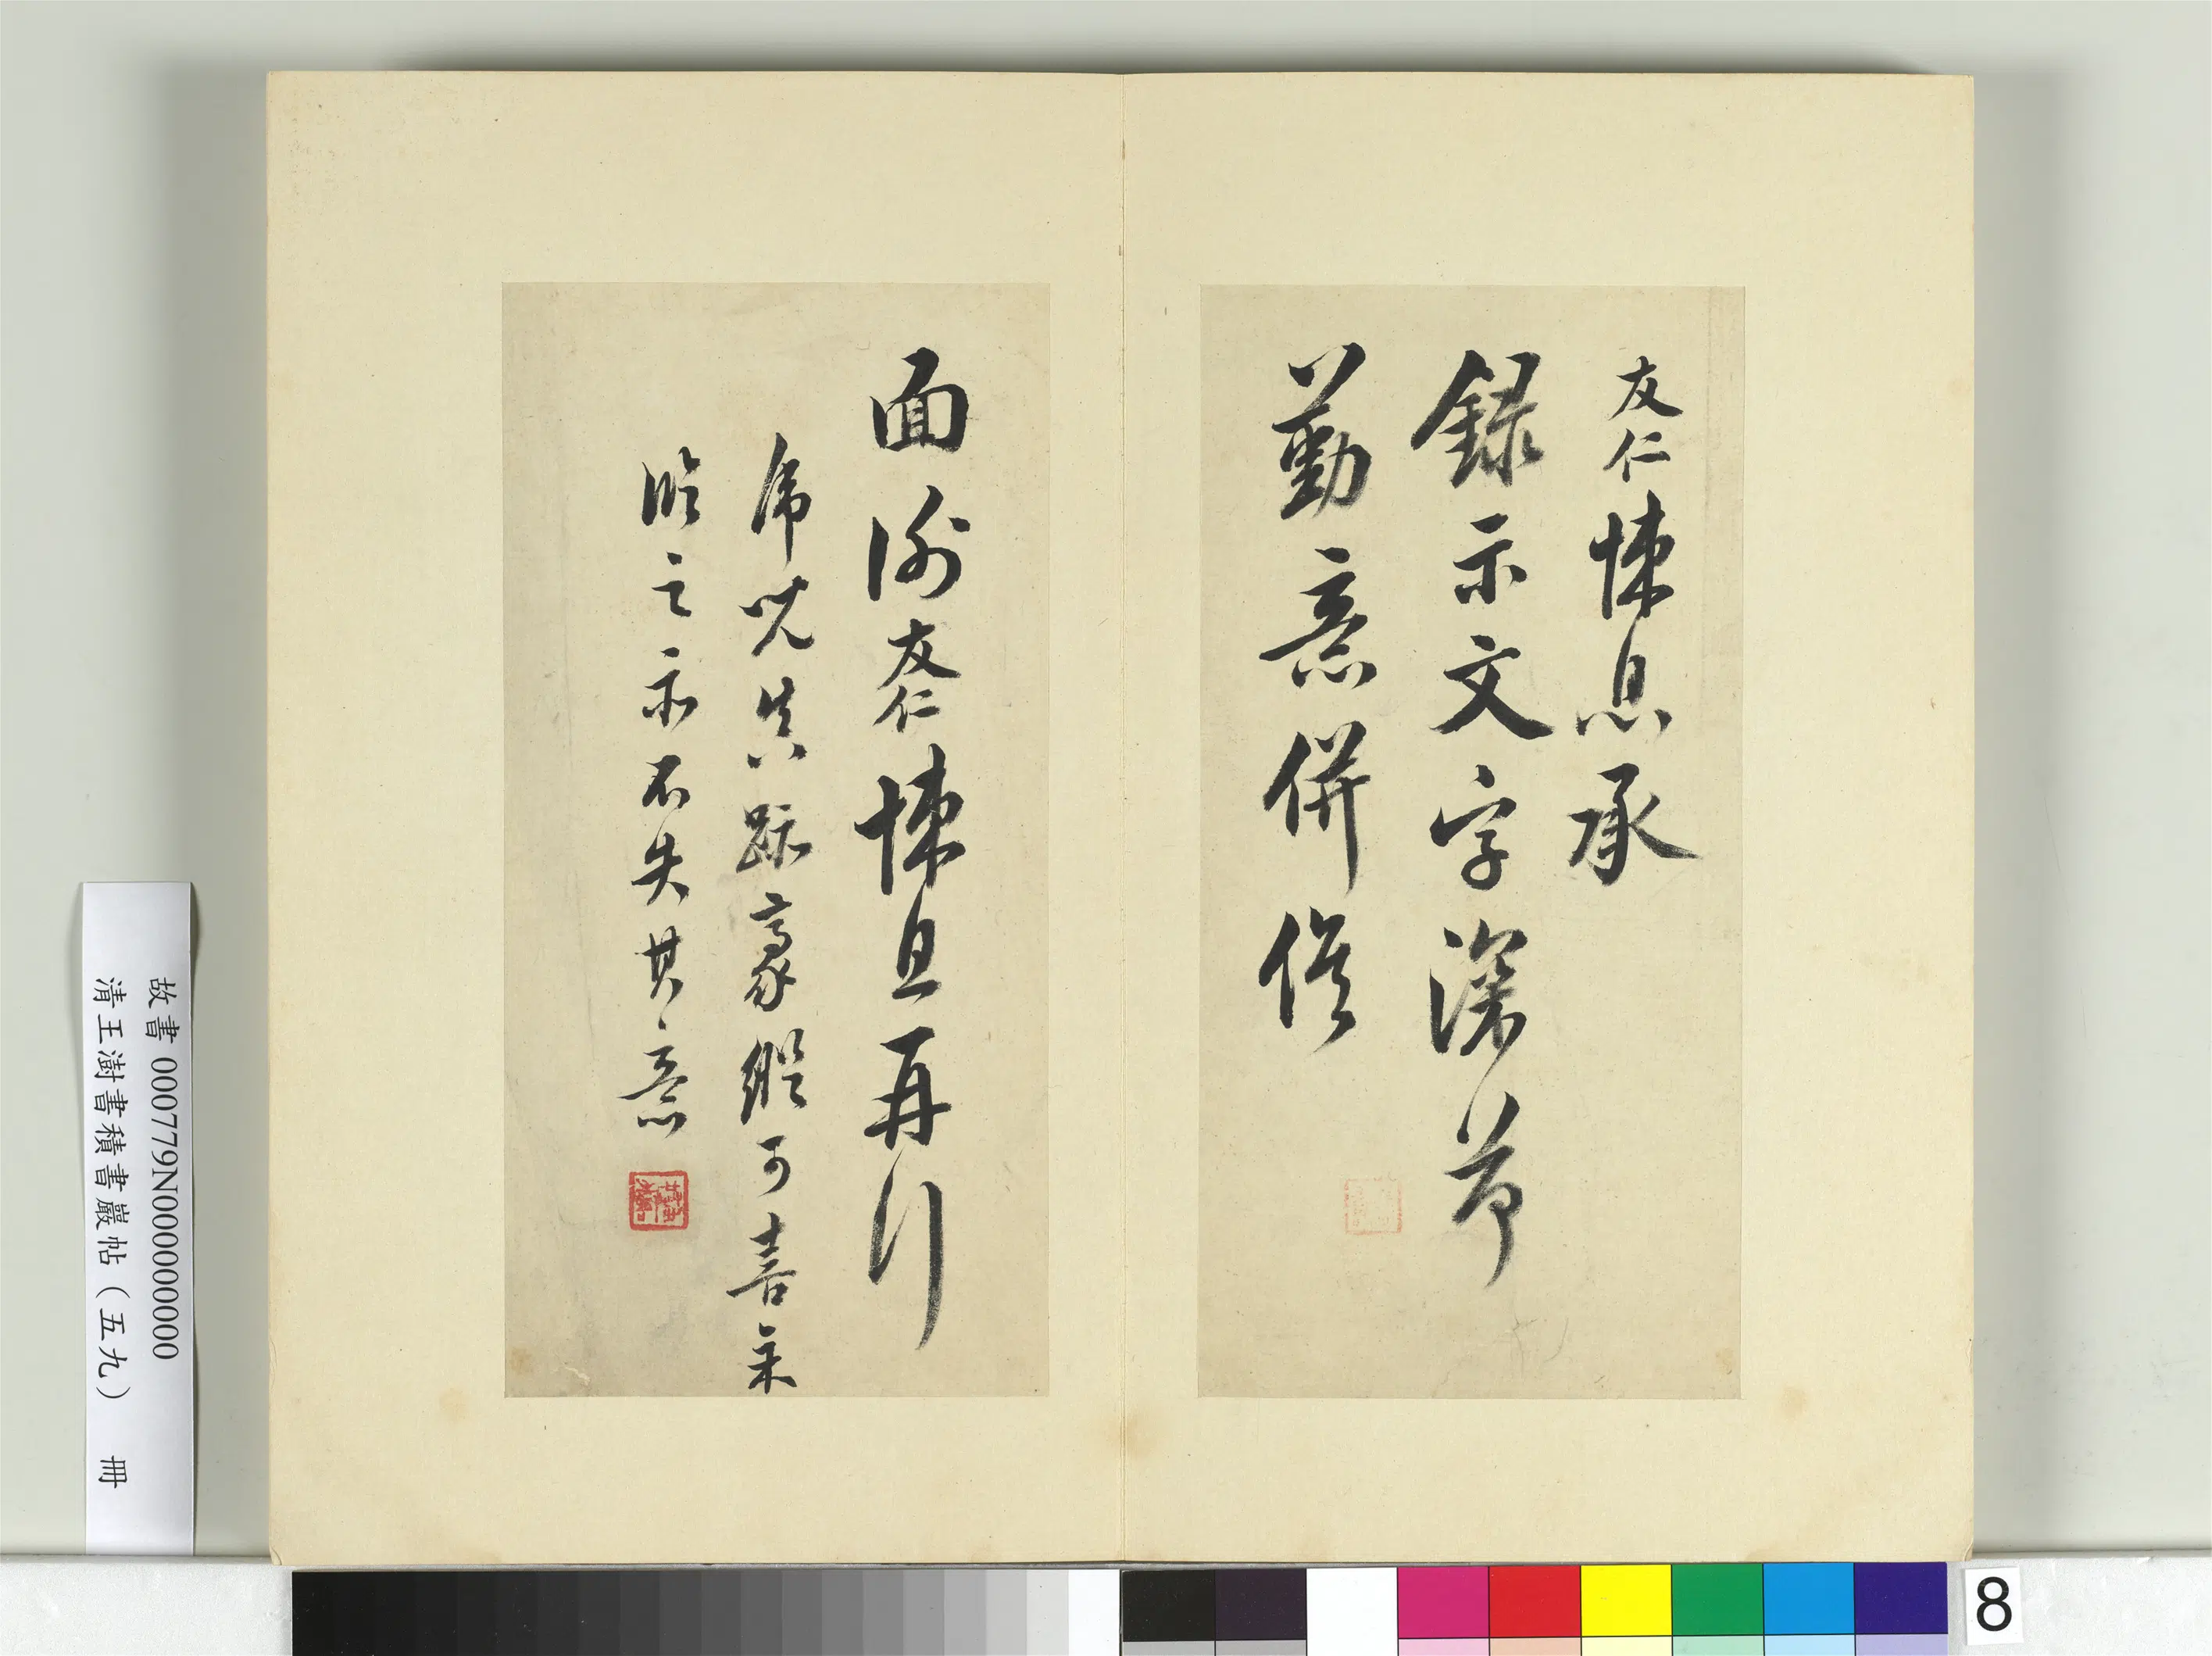 友仁悚息承
錄示文字深荷
勤意併俟
面謝友仁悚息再行
虎兒真跡豪縱可喜余
臨之亦不失其意
故書 000779N000000000
清王澍書積書巖帖（五九） 冊
8